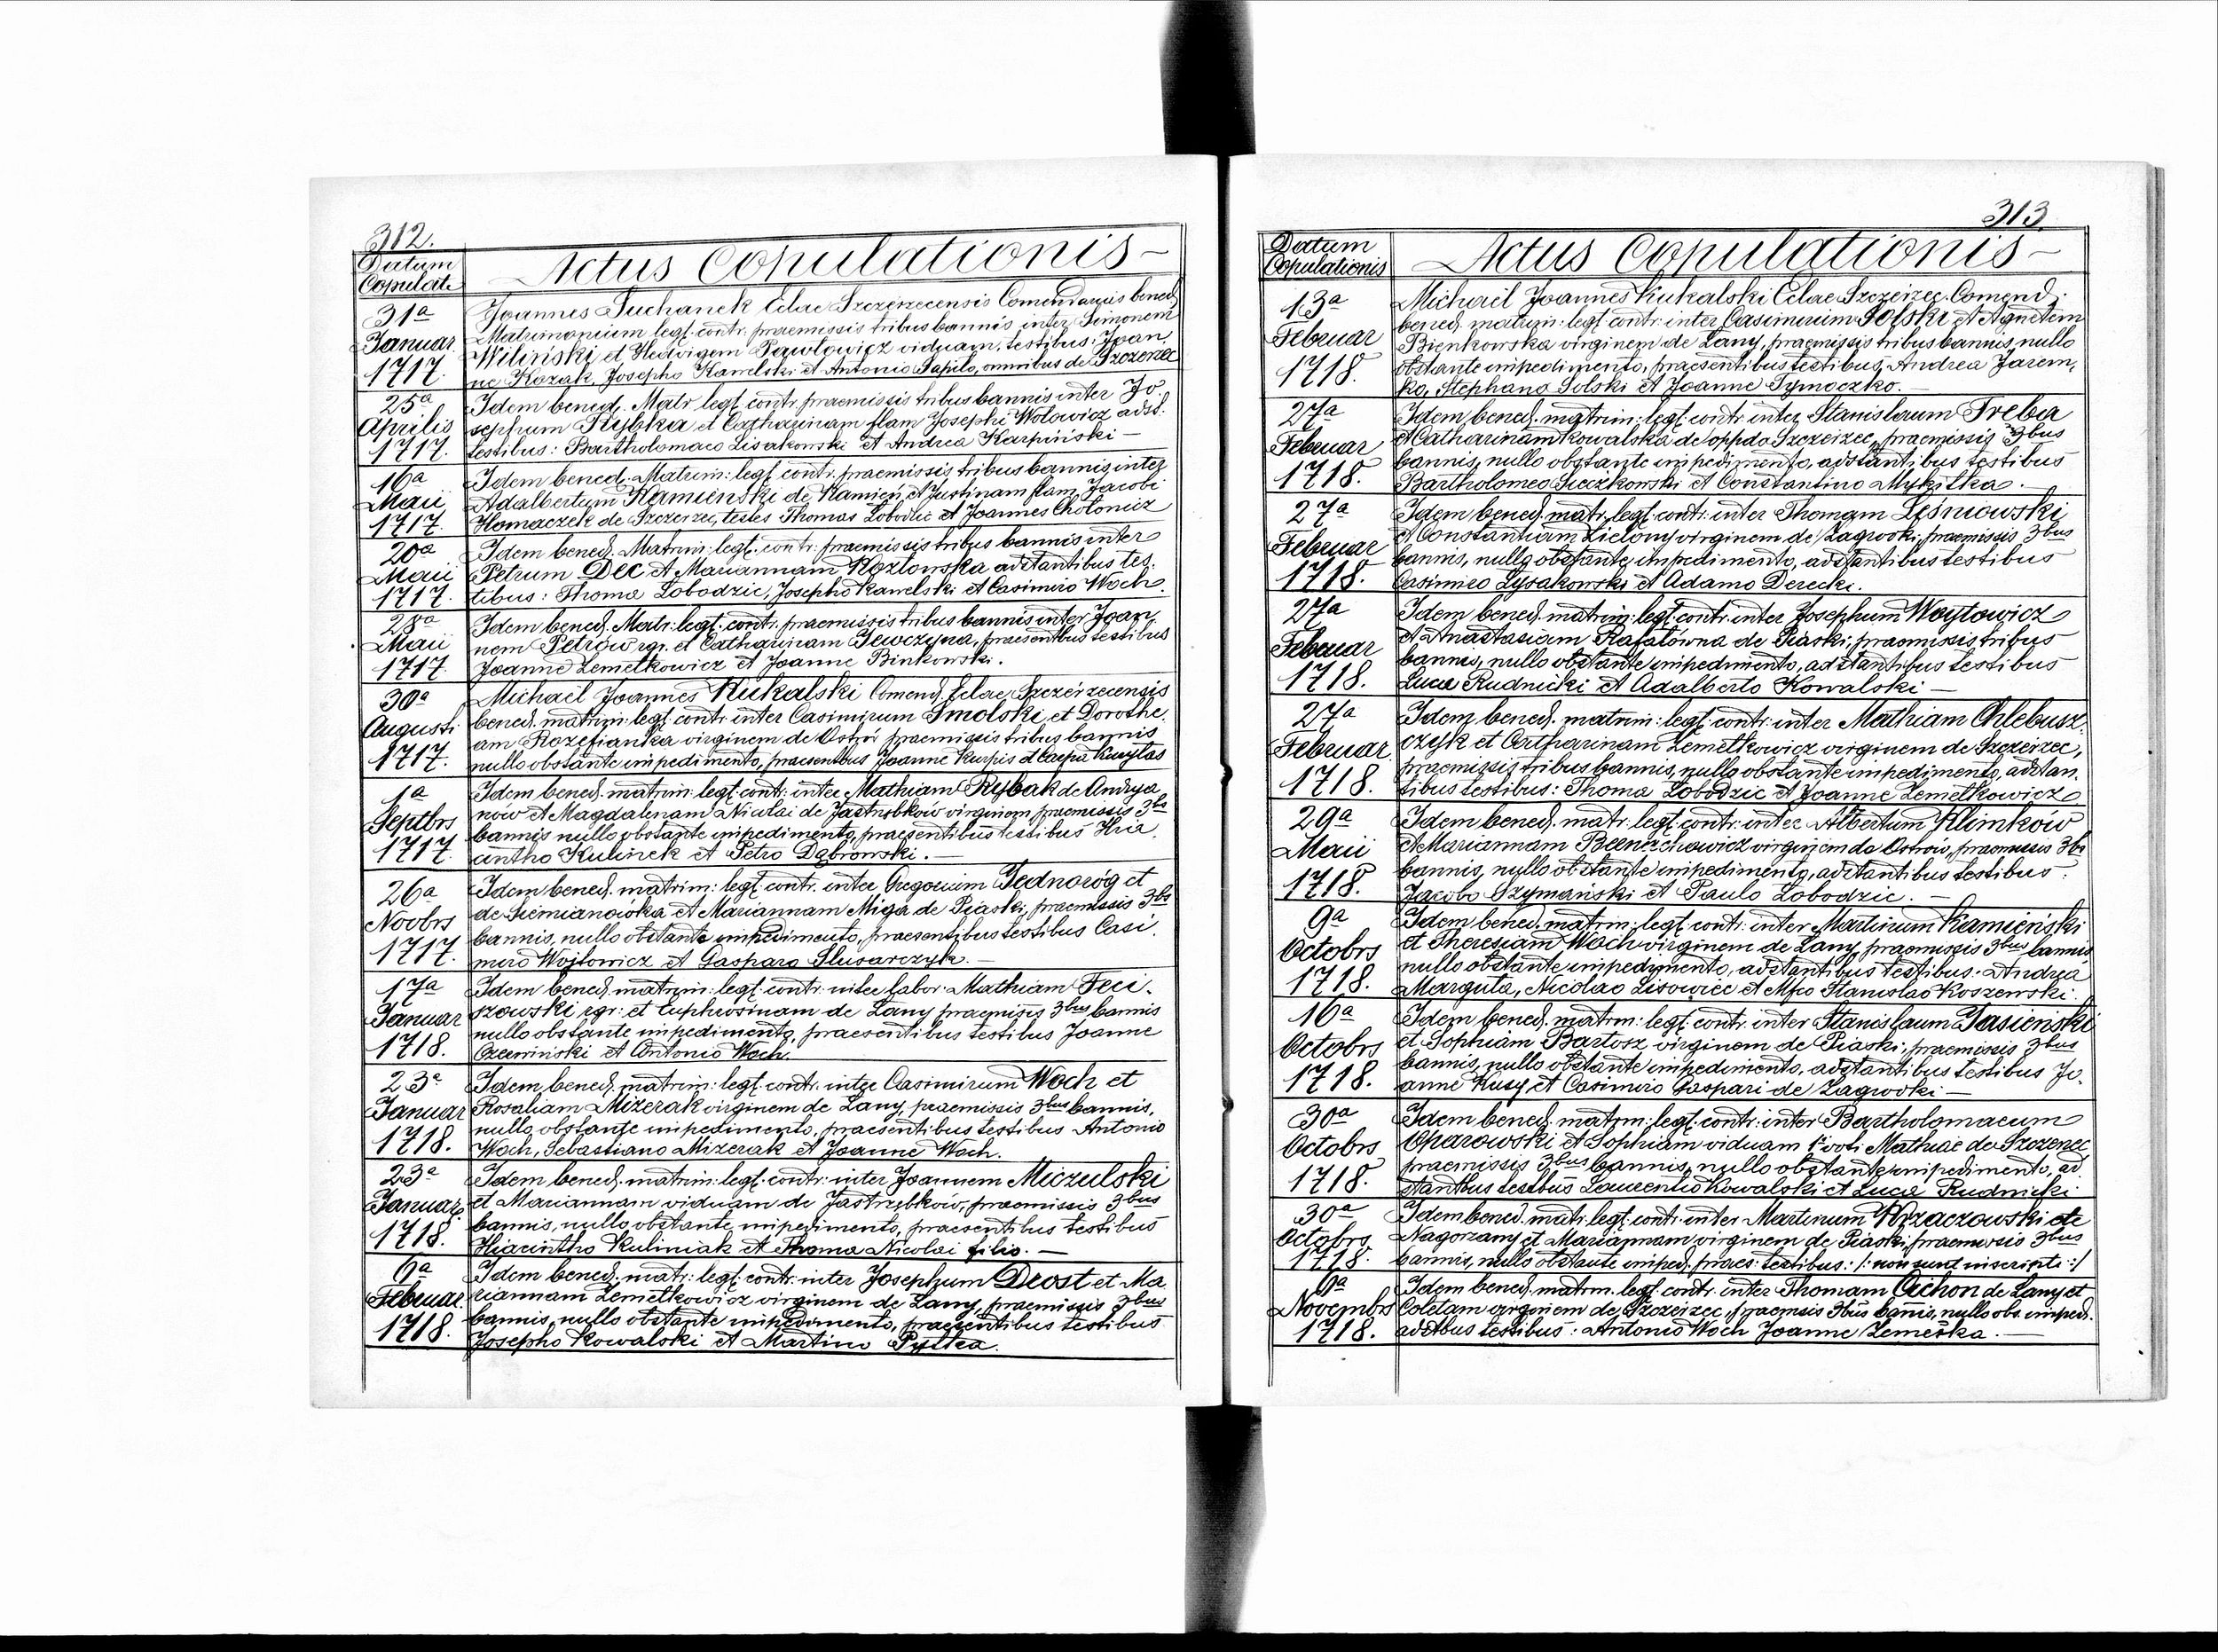 312.
Datum
Copulat.
Actus Copulationis
31a
Januar
1717.
Joannes Suchanek Eclae Szczerzecensis Comendarius bened.
Matrimonium legt. contr. praemissis tribus bannis inter Simonem
Wiliński et Hedvigem Pawłowicz viduam, testibus: Joan.
ne Kozak, Josepho Kawelski et Antonio Sapilo, omnibus de Szczerzec
25a
Aprilis
1717.
Idem bened. Matr. legt. contr. praemissis tribus bannis inter Jo.
sephum Rybka et Catharinam flam Josephi Wołowicz adst.
testibus: Bartholomaeo Lisakowski et Andrea Karpiński
16a
Maii
1717.
Idem bened. Matrim: legt. contr. praemissis tribus bannis inter
Adalbertum Kamieński de Kamień, et Justinam flam Jacobi
Tłomaczek de Szczerzec, testes Thomas Łobodzic et Joannes Chotonicz
20a
Maii
1717.
Idem bened. Matrim: legt. contr: praemissis tribus bannis inter
Petrum Dec et Mariannam Kozłowska adstantibus tes.
tibus: Thoma Łobodzic, Josepho Kawelski et Casimiro Woch.
28a
Maii
1717.
Idem bened. Matr: legt. contr. praemissis tribus bannis inter Joan.
nem Petrów rgr. et Catharinam Jewczyna, praesentibus testibus
Joanne Zemełkowicz et Joanne Binkowski.
30a
Augusti
1717.
Michaël Joannes Kukalski Comend. Eclae Szczerzecensis
bened. matrim: legt. contr. inter Casimirum Smolski et Dorothe.
am Rozefianka virginem de Ostrów praemissis tribus bannis
nullo obstante impedimento, praesentibus Joanne Kurpis et Caspa Kurylas
1a
Septbrs
1717.
Idem bened. matrim: legt. contr: inter Mathiam Rybak de Andrya.
nów et Magdalenam Nicolai de Jastrzbków virginem, praemissis 3bs
bannis nullo obstante impedimento, praesentibus testibus Hia.
cintho Kulinek et Petro Dąbrowski.
26a
Novbrs
1717.
Idem bened. matrim: legt. contr. inter Gregorium Jednoróg et
de Siemianówka et Mariannam Miga de Piaski, praemissis 3bs
bannis, nullo obstante impedimento, praesentibus testibus Casi.
miro Wojtowicz et Gasparo Slusarczyk.
17a
Januar
1718.
Idem bened. matrim: legt. contr. inter labor. Mathiam Feci.
szowski rgr. et Euphrosinam de Łany praemissis 3bus bannis
nullo obstante impedimento, praesentibus testibus Joanne
Czermiński et Antonio Woch.
23a
Januar
1718.
Idem bened. matrim: legt. contr. inter Casimirum Woch et
Rosaliam Mizerak virginem de Łany, praemissis 3bus bannis,
nullo obstante impedimento, praesentibus testibus Antonio
Woch, Sebastiano Mizerak et Joanne Woch.
23a
Januar
1718.
Idem bened. matrim: legt. contr: inter Joannem Miczulski
et Mariannam viduam de Jastrzębków, praemissis 3bus
bannis, nullo obstante impedimento, praesentibus testibus
Hiacintho Kuliniak et Thoma Nicolai filio.
6a
Februar.
1718.
Idem bened. matr: legt. contr: inter Josephum Deost et Ma
riannam Zemełkowicz virginem de Łany, praemissis 3bus
bannis, nullo obstante impedimento, praesentibus testibus
Josepho Kowalski et Martino Pytka.
313.
Datum
Copulationis
Actus Copulationis
13a
Februar
1718.
Michaël Joannes Kukalski Eclae Szczerzec. Comend.
bened. matrim: legt. contr: inter Casimirum Solski et Agnetem
Bieńkowska virginem de Łany, praemissis tribus bannis, nullo
obstante impedimento, praesentibus testibus, Andrea Jarem,
ko, Stephano Solski et Joanne Tymoczko.
27a
Februar
1718.
Idem bened. matrim: legt. contr. inter Stanislaum Treba
et Catharinam Kowalska de oppdo Szczerzec, praemissis 3bus
bannis, nullo obstante impedimento, adstantibus testibus
Bartholomeo Sieczkowski et Constantino Mykitka.
27a
Februar
1718.
Idem bened. matr. legt. contr: inter Thomam Leśniowski
et Constantiam Zielony virginem de Zagrodki, praemissis 3bus
bannis, nullo obstante impedimento, adstantibus testibus
Casimiro Łysakowski et Adamo Derecki.
27a
Februar
1718.
Idem bened. matrim: legt. contr: inter Josephum Woytowicz
et Anastasiam Rafałówna de Piaski, praemissis tribus
bannis, nullo obstante impedimento, adstantibus testibus
Luca Rudnicki et Adalberto Kowalski
27a
Februar
1718.
Idem bened. matrim: legt. contr: inter Mathiam Chlebusz.
czyk et Catharinam Zemełkowicz virginem de Szczerzec,
praemissis tribus bannis, nullo obstante impedimento, adstan.
tibus testibus: Thoma Łobodzic et Joanne Zemełkowicz
29a
Maii
1718.
Idem bened. matr: legt. contr: inter Albertum Klimków
et Mariannam virginem de Ostrów, praemissis 3bs
bannis, nullo obstante impedimento, adstantibus testibus.
Jacobo Szymański et Paulo Łobodzic.
9a
Octobrs
1718.
Idem bened. matrim: legt. contr: inter Martinum Kamieński
et Theresiam Woch virginem de Łany, praemissis 3bus bannis
nullo obstante impedimento, adstantibus testibus. Andrea
Marguta, Nicolao Lisowicc et Mfco Stanislao Koszewski.
16a
Octobrs
1718.
Idem bened. matrm: legt. contr. inter Stanislaum Jasieński
et Sophiam Bartosz virginem de Piaski, praemissis 3bus
bannis, nullo obstante impedimento, adstantibus testibus Jo.
anne Kusy et Casimiro Gaspari de Zagrodki
30a
Octobrs
1718.
Idem bened. matrm: legt. contr: inter Bartholomaeum
Oparowski et Sophiam viduam 1i voti Mathiae de Szczerzec
praemissis 3bus bannis, nullo obstante impedimento, ad
stantbus testbus Laurentio Kowalski et Luca Rudnicki.
30a
Octobrs
1718.
Idem bened. matr. legt. contr: inter Martinum Krzaczowski de
Nagorzany et Mariannam virginem de Piaski, praemissis 3bus
bannis, nullo obstante imped. praes: testibus: /: non sunt inscripti :/
6a
Novembrs
1718.
Idem bened. matrm. legt. contr: inter Thomam Cichon de Łany et
Coletam virginem de Szczerzec, praemsis 3bus bannis, nullo obs. imped.
adstbus testibus: Antonio Woch Joanne Zemełka.